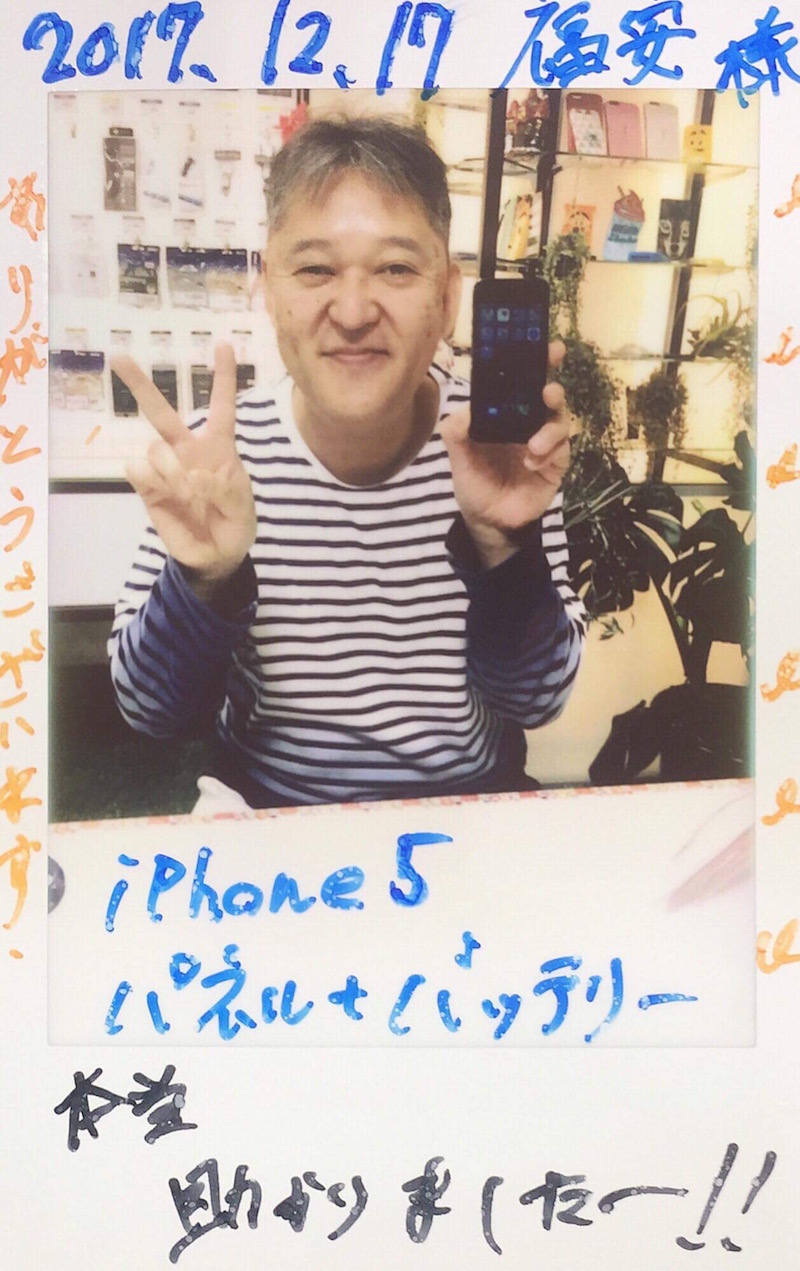 2017.12.17 福安様
ありがとうございます.
iPhone5
パネル+バッテリー
本当
助かりましたー!!